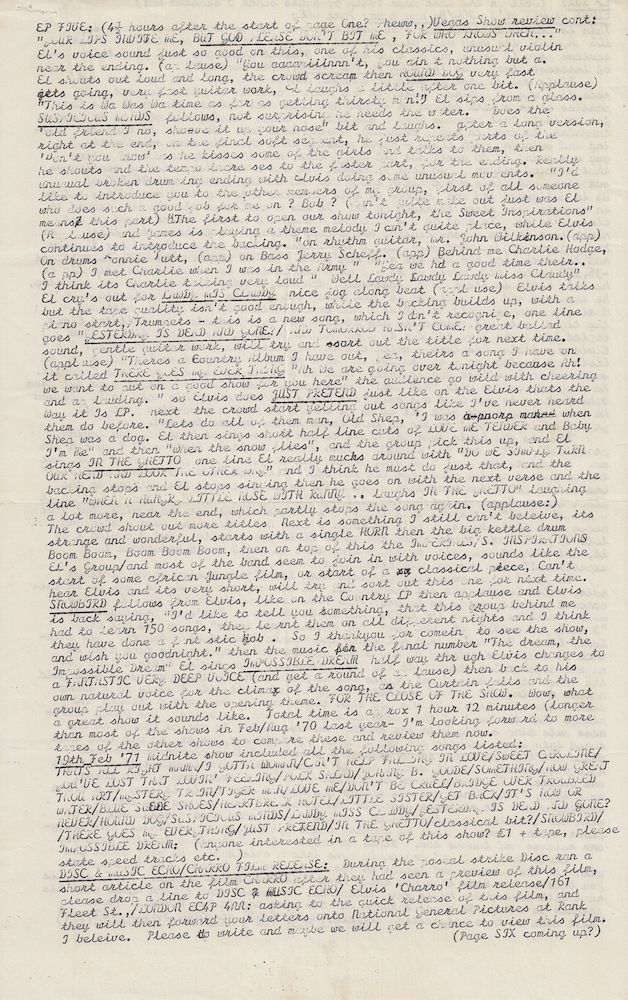 EP FIVE: (4½ hours after the start of page One? Pheww,,)Vegas Show review cont:
"YOUR LIPS INVITE ME, BUT GOD PLEASE DON'T BIT ME , FOR WHO KNOWS WHEN..."
El's voice sound just so good on this, one of his classics, unusual violin
near the ending. (ap lause) "You aaaariiinnn't, you ain t nothing but a.
El shouts out loud and long, the crowd scream then HOUND DOG very fast
gets going, very fast guitar work, El laughs a little after one bit. (Applause)
"This is Wa Was Wa time as far as getting thirsty m n!" El sips from a glass.
SUSPICIOUS MINDS follows, not surprising he needs the w ter. Does the
'old friend I no, shoove it up your nose" bit and laughs. after a long version,
right at the end, on the final soft segment, he just repeats parts of the
'Don't you now' as he kisses some of the girls and talks to them, then
he shouts and the tempo increases to the f ster part, for the ending. Really
unusual broken drumming ending with Elvis doing some unusual movements. "I'd
like to introduce you to the other members of my group, first of all someone
who does such a good job for me on ? Bob ? ( an't quite make out just was El
means this part) "The first to open our show tonight, the Sweet Inspirations"
(A l use) and James is playing a theme melody I can't quite place, while Elvis
continues to introduce the backing. "on rhythm guitar, mr. John Wilkinson. (app)
On drums onnie Tutt, (app) on Bass Jerry Scheff. (app) Behind me Charlie Hodge,
(a pp) I met Charlie when I was in the Army " "Yea we hd a good time their..
I think its Charlie talking very loud " Well Lawdy Lawdy Lawdy miss Clawdy"
El cry's out for LAWDY MIS CLAWDY nice jog along beat (appl use) Elvis talks
but the tape quality isn't good enough, while the backing builds up, with a
piano start, Trumpets - this is a new song, which I dn't recognise, one line
goes "YESTERDAY IS DEAD AND GONE?/ AND TOMORROW HASN'T COME: great ballad
sound, gentle guitar work, will try and ssort out the title for next time.
(appl use) "Theres a Country Album I have out, yea, theirs a song I have on
it called THERE GOES MY EVER THING "Ah we are going over tonight because Ah!
we want to put on a good show for you here" the audience go wild with cheering
and ap lauding. " so Elvis does JUST PRETEND just like on the Elvis thats the
Way it Is LP. next the crowd start yelling out songs like I've never heard
them do before. "Lets do all of them man, Old Shep, 'I was when
Shep was a dog. El then sings short half line cuts of LOVE ME TENDER and Baby
I'm Me" and then "When the snow flies", and the group pick this up, and El
sings IN THE GHETTO one line El really mucks around with "DO WE SIMPLY TURN
OUR HEAD AND LOOK THE OTHER WAY" and I think he must do just that, and the
backing stops and El stops singing then he goes on with the next verse and the
line "WHEN A HUNGRY LITTLE NOSE WITH RUNNY .. laughs IN THE GHETTO" laughing
a lot more, near the end, which partly stops the song again. (applause:)
The crowd shout out more titles Next is something I still can't beleive, its
strange and wonderful, starts with a single HORN then the big kettle drum
Boom Boom, Boom Boom Boom, then on top of this the IMPERIALS/S. INSPIRATIONS
El's Group/and most of the band seem to join in with voices, sounds like the
start of some african Jungle film, or start of a classical piece, Can't
hear Elvis and its very short, will try and sort out this one for next time.
SNOWBIRD follows from Elvis, like on the Country LP then applause and Elvis
is back saying, "I'd like to tell you something, that this group behind me
had to learn 150 songs, they learnt them on all different nights and I think
they have done a f nt stic Job . So I thankyou for comein to see the show,
and wish you goodnight." then the music for the final number "The dream, the
Impossible Dream" El sings IMPOSSIBLE DREAM half way thr ugh Elvis changes to
a FANTASTIC VERY DEEP VOICE (and get a round of ap lause) then back to his
own natural voice for the climax of the song, as the Curtain falls and the
group play out with the opening theme. FOR THE CLOSE OF THE SHOW. Wow, what
a great show it sounds like. Total time is ap rox 1 hour 12 minutes (longer
than most of the shows in Feb/Aug '70 last year- I'm looking forw rd to more
tapes of the other shows to compare these and review them now.
19th Feb '71 midnite show included all the following songs listed:
THATS ALL RIGHT MAMA/I GOTTA WOMAN/CAN'T HELP FALLING IN LOVE/SWEET CAROLINE/
YOU'VE LOST THAT LOVIN' FEELING/POLK SALAD/JOHNNY B. GOODE/SOMETHING/HOW GREAT
THOU ART/MYSTERY TRAIN/TIGER MAN/LOVE ME/DON'T BE CRUEL/BRIDGE OVER TROUBLED
WATER/BLUE SUEDE SHOES/HEARTBREAK HOTEL/LITTLE SISTER/GET BACK/IT'S NOW OR
NEVER/HOUND DOG/SUSPICIOUS MINDS/LAWDY MISS CLAWDY/YESTERDAY IS DEAD AND GONE?
/THERE GOES MY EVERYTHING/JUST PRETEND/IN THE GHETTO/classical bit?/SNOWBIRD/
IMPOSSIBLE DREAM: (anyone interested in a tape of this show? £1 + tape, please
state speed tracks etc. )
DISC & MUSIC ECHO/CHARRO FILM RELEASE: During the postal strike Disc ran a
short article on the film CHARRO after they had seen a preview of this film,
please drop a line to DISC & MUSIC ECHO/ Elvis 'Charro' film release/161
Fleet St.,/LONDON EC4P 4AA: asking to the quick release of this film, and
they will then forward your letters onto National General Pictures at Rank
I beleive. Please do write and maybe we will get a chance to view this film.
(Page SIX coming up?)